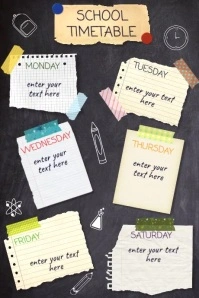 SCHOOL
TIMETABLE
MONDAY
enter your
text here
TUESDAY
enter your
text here
WEDNESDAY
enter your
text here
THURSDAY
enter your
text here
FRIDAY
enter your
text here
SATURDAY
enter your
text here